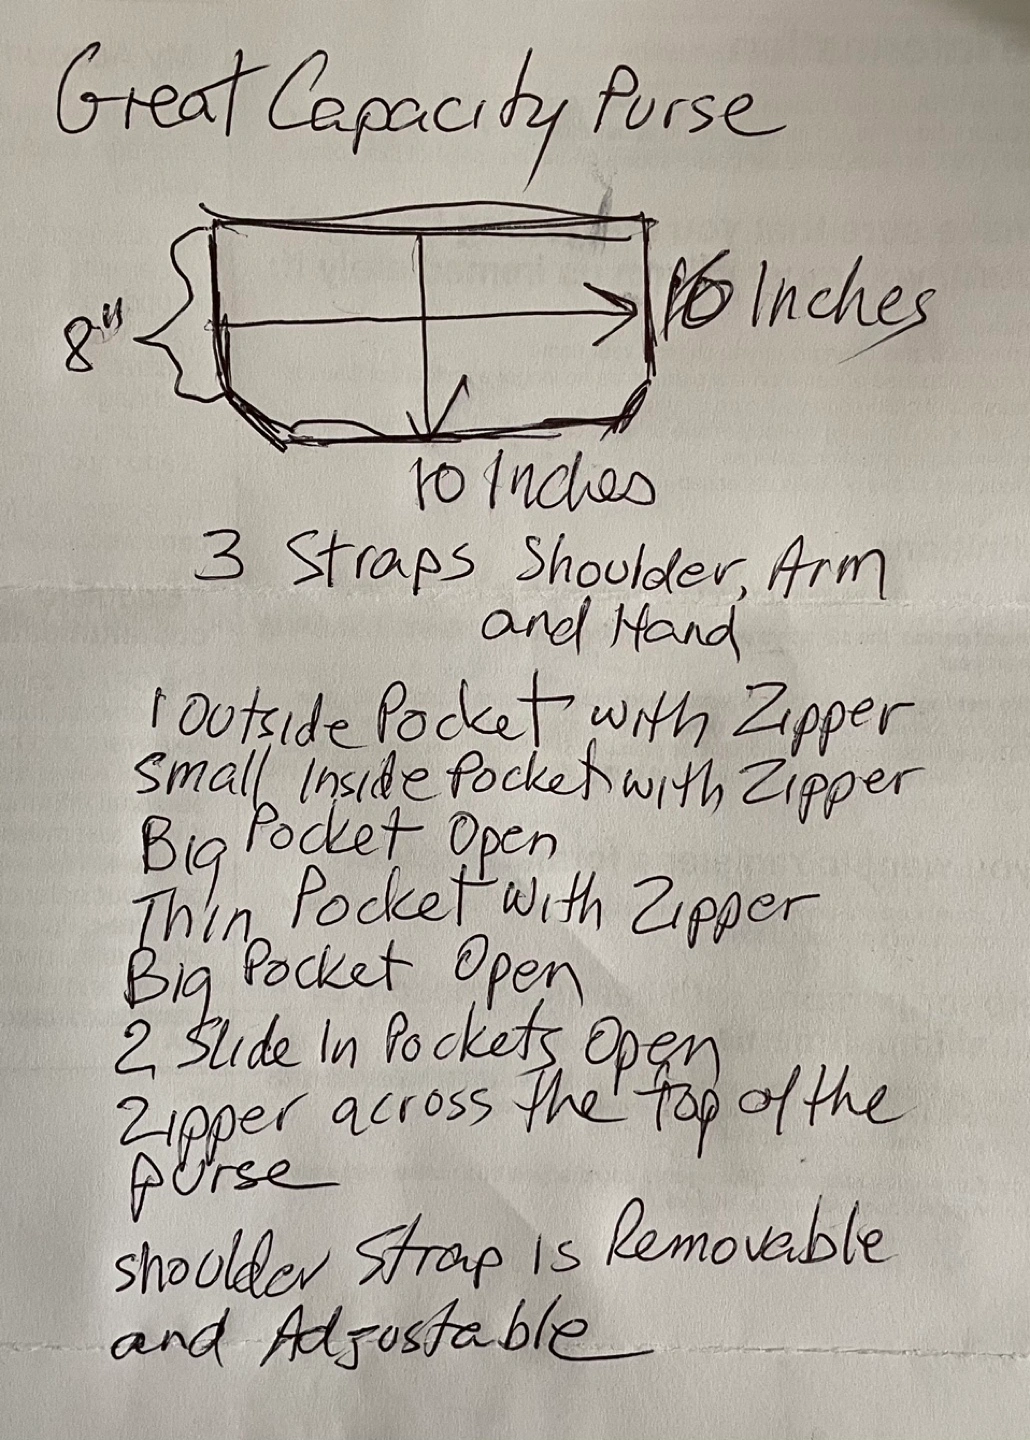 Great Capacity Purse
8"
Inches
10 Inches
3 Straps Shoulder, Arm
and Hand
1 Outside Pocket with Zipper
Small Inside Pocket with Zipper
Big Pocket Open
Thin Pocket with Zipper
Big Pocket Open
2 Slide In Pockets Open
Zipper across the top of the
purse
shoulder Strap is Removable
and Adjustable